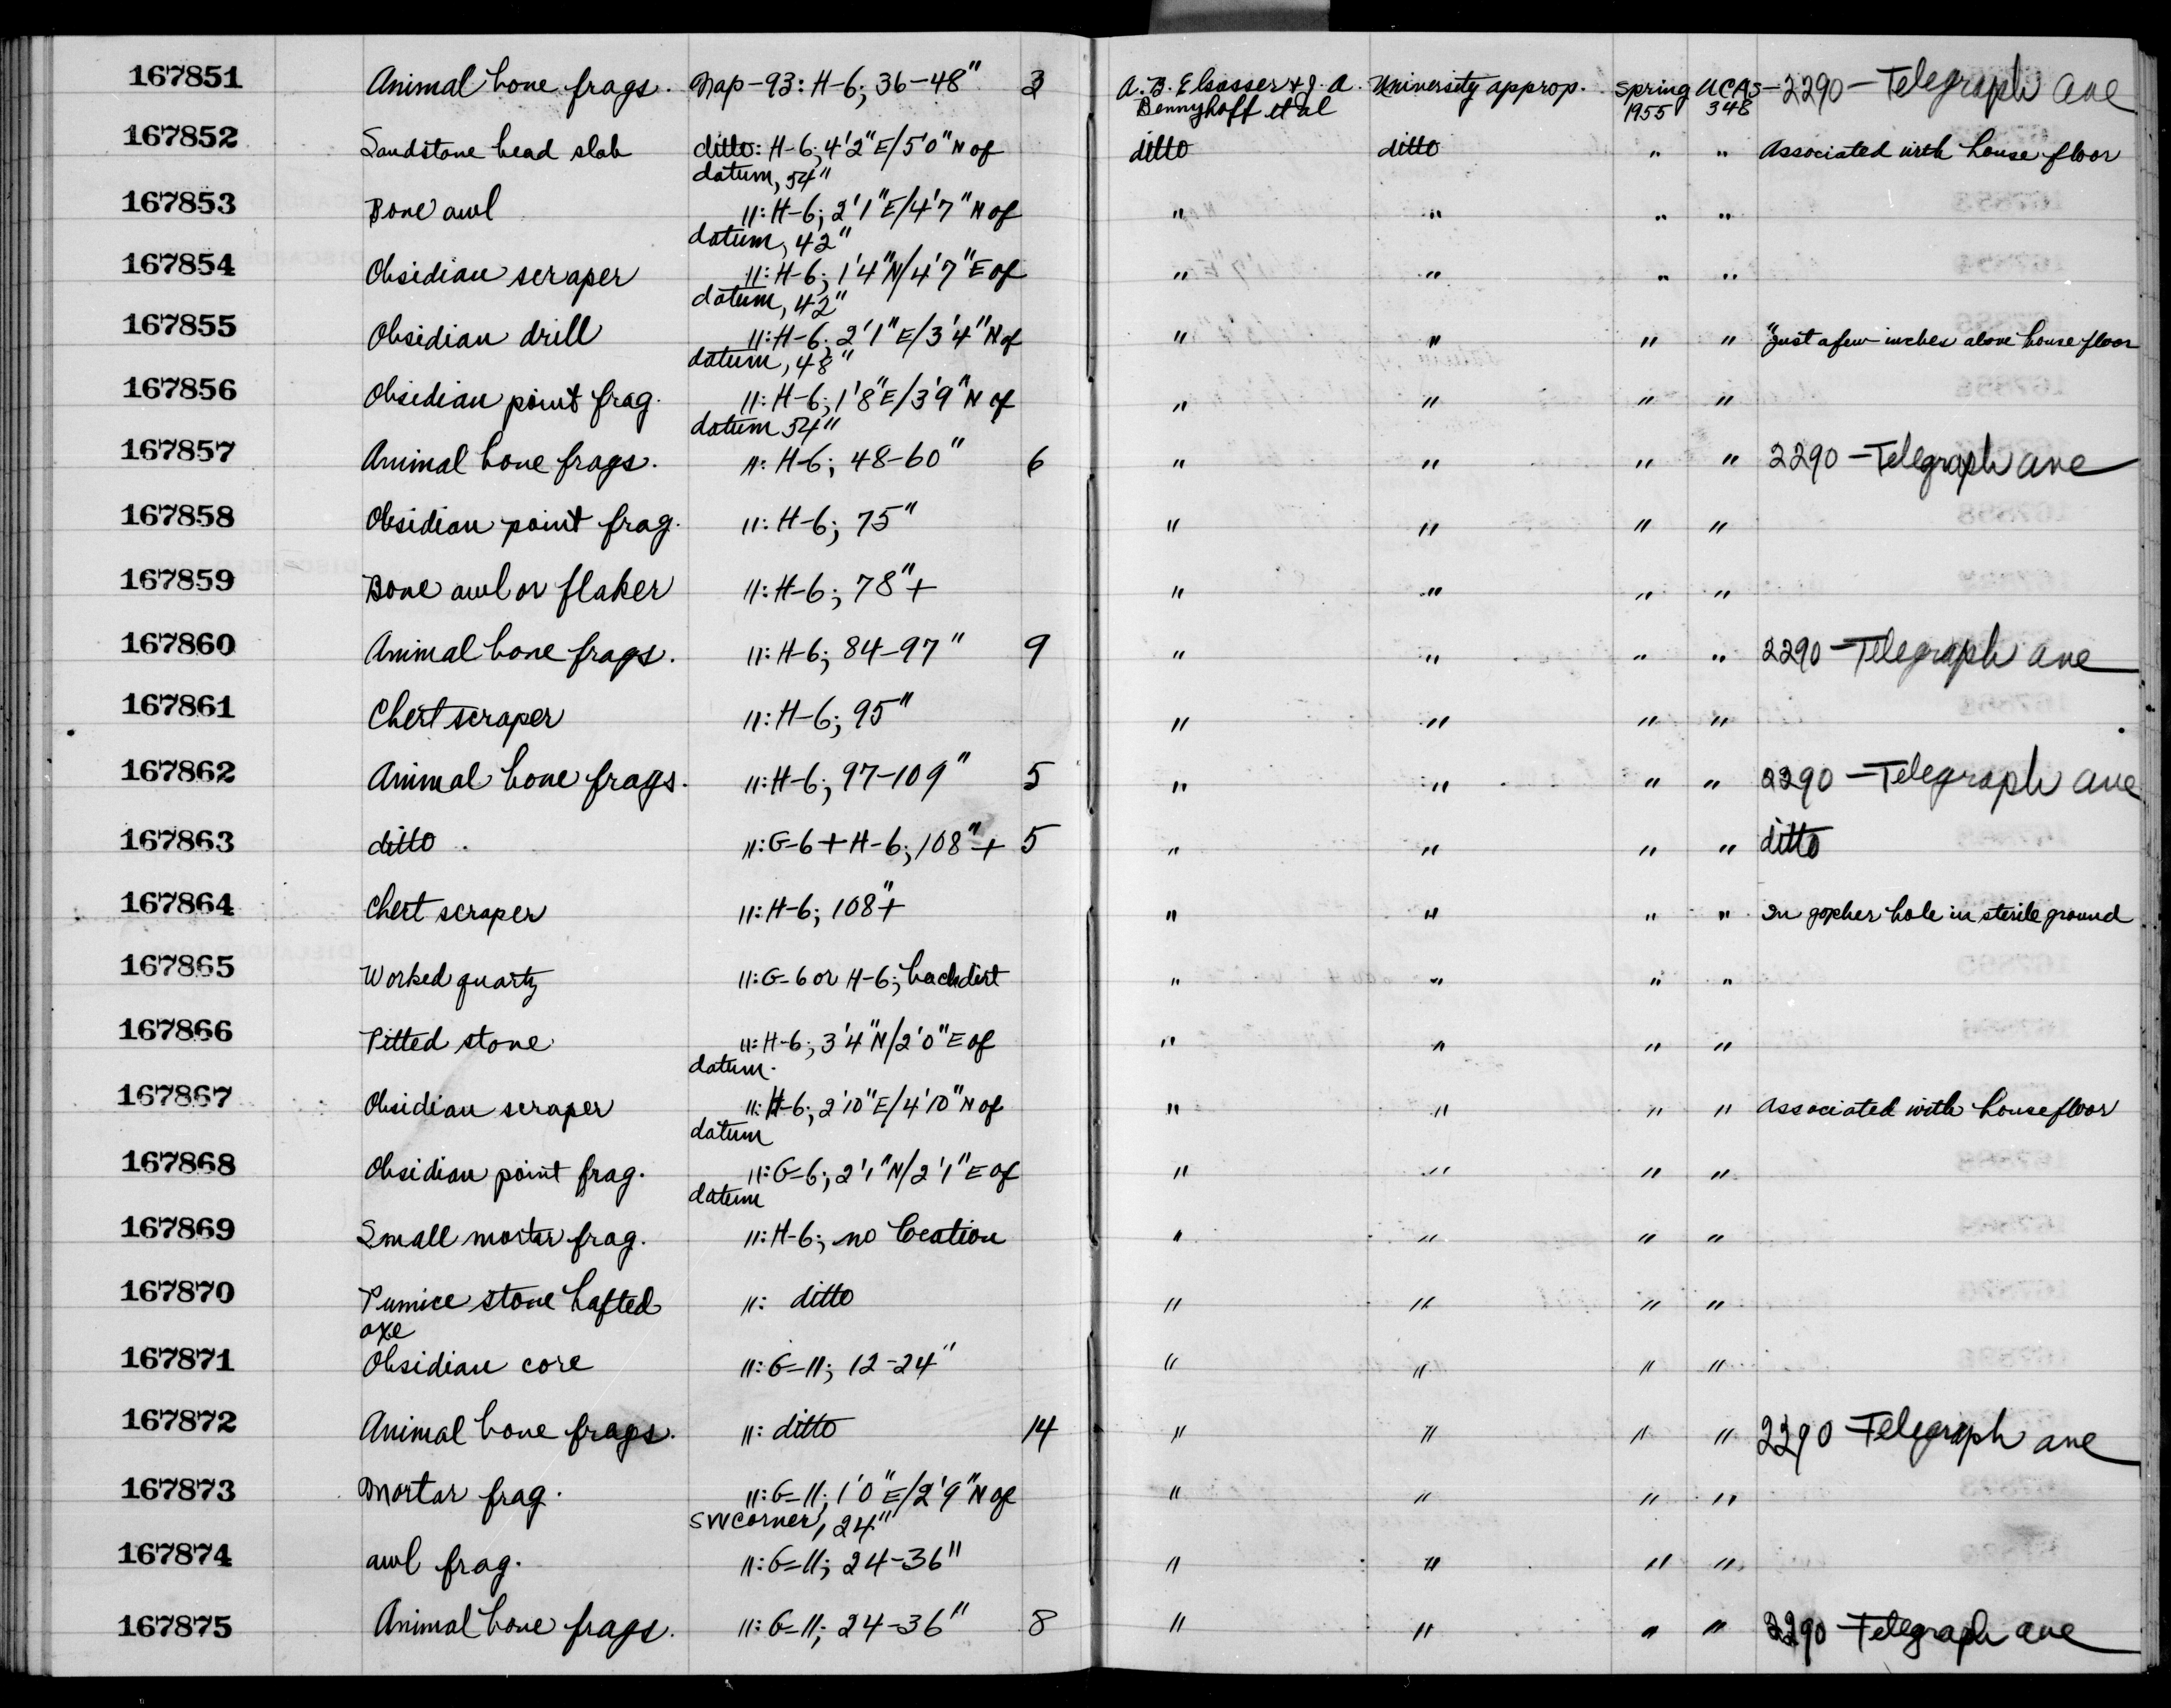 167851 Animal bone frags. Nap-93: H-6; 36-48" 3 A. B. Elsasser & J. A. University approp. Spring UCAS- 2290 - Telegraph Ave
Bennyhoff et al 1955 348
167852 Sandstone bead slab ditto: H-6; 4'2"E/5'0"N of ditto ditto " " Associated with house floor
datum, 54"
167853 Bone awl ": H-6; 2'1"E/4'7"N of " " " "
datum, 42"
167854 Obsidian scraper ": H-6; 1'4"N/4'7"E of " " " "
datum, 42"
167855 Obsidian drill ": H-6; 2'1"E/3'4"N of " " " " "Just a few inches above house floor
datum, 48"
167856 Obsidian point frag. ": H-6; 1'8"E/3'9"N of " " " "
datum 54"
167857 Animal bone frags. ": H-6; 48-60" 6 " " " " 2290 - Telegraph Ave
167858 Obsidian point frag. ": H-6; 75" " " " "
167859 Bone awl or flaker ": H-6; 78"+ " " " "
167860 Animal bone frags. ": H-6; 84-97" 9 " " " " 2290 - Telegraph Ave
167861 Chert scraper ": H-6; 95" " " " "
167862 Animal bone frags. ": H-6; 97-109" 5 " " " " 2290 - Telegraph Ave
167863 ditto ": G-6 + H-6; 108"+ 5 " " " " ditto
167864 Chert scraper ": H-6; 108"+ " " " " In gopher hole in sterile ground
167865 Worked quartz ": G-6 or H-6; backdirt " " " "
167866 Pitted stone ": H-6; 3'4"N/2'0"E of " " " "
datum.
167867 Obsidian scraper ": H-6; 2'10"E/4'10"N of " " " " Associated with house floor
datum
167868 Obsidian point frag. ": G-6; 2'1"N/2'1"E of " " " "
datum
167869 Small mortar frag. ": H-6; no location " " " "
167870 Pumice stone hafted ": ditto " " " "
axe
167871 Obsidian core ": G-11; 12-24" " " " "
167872 Animal bone frags. ": ditto 14 " " " " 2290 - Telegraph Ave
167873 Mortar frag. ": G-11; 1'0"E/2'9"N of " " " "
SW corner, 24"
167874 awl frag. ": G-11; 24-36" " " " "
167875 Animal bone frags. ": G-11; 24-36" 8 " " " " 2290 - Telegraph Ave